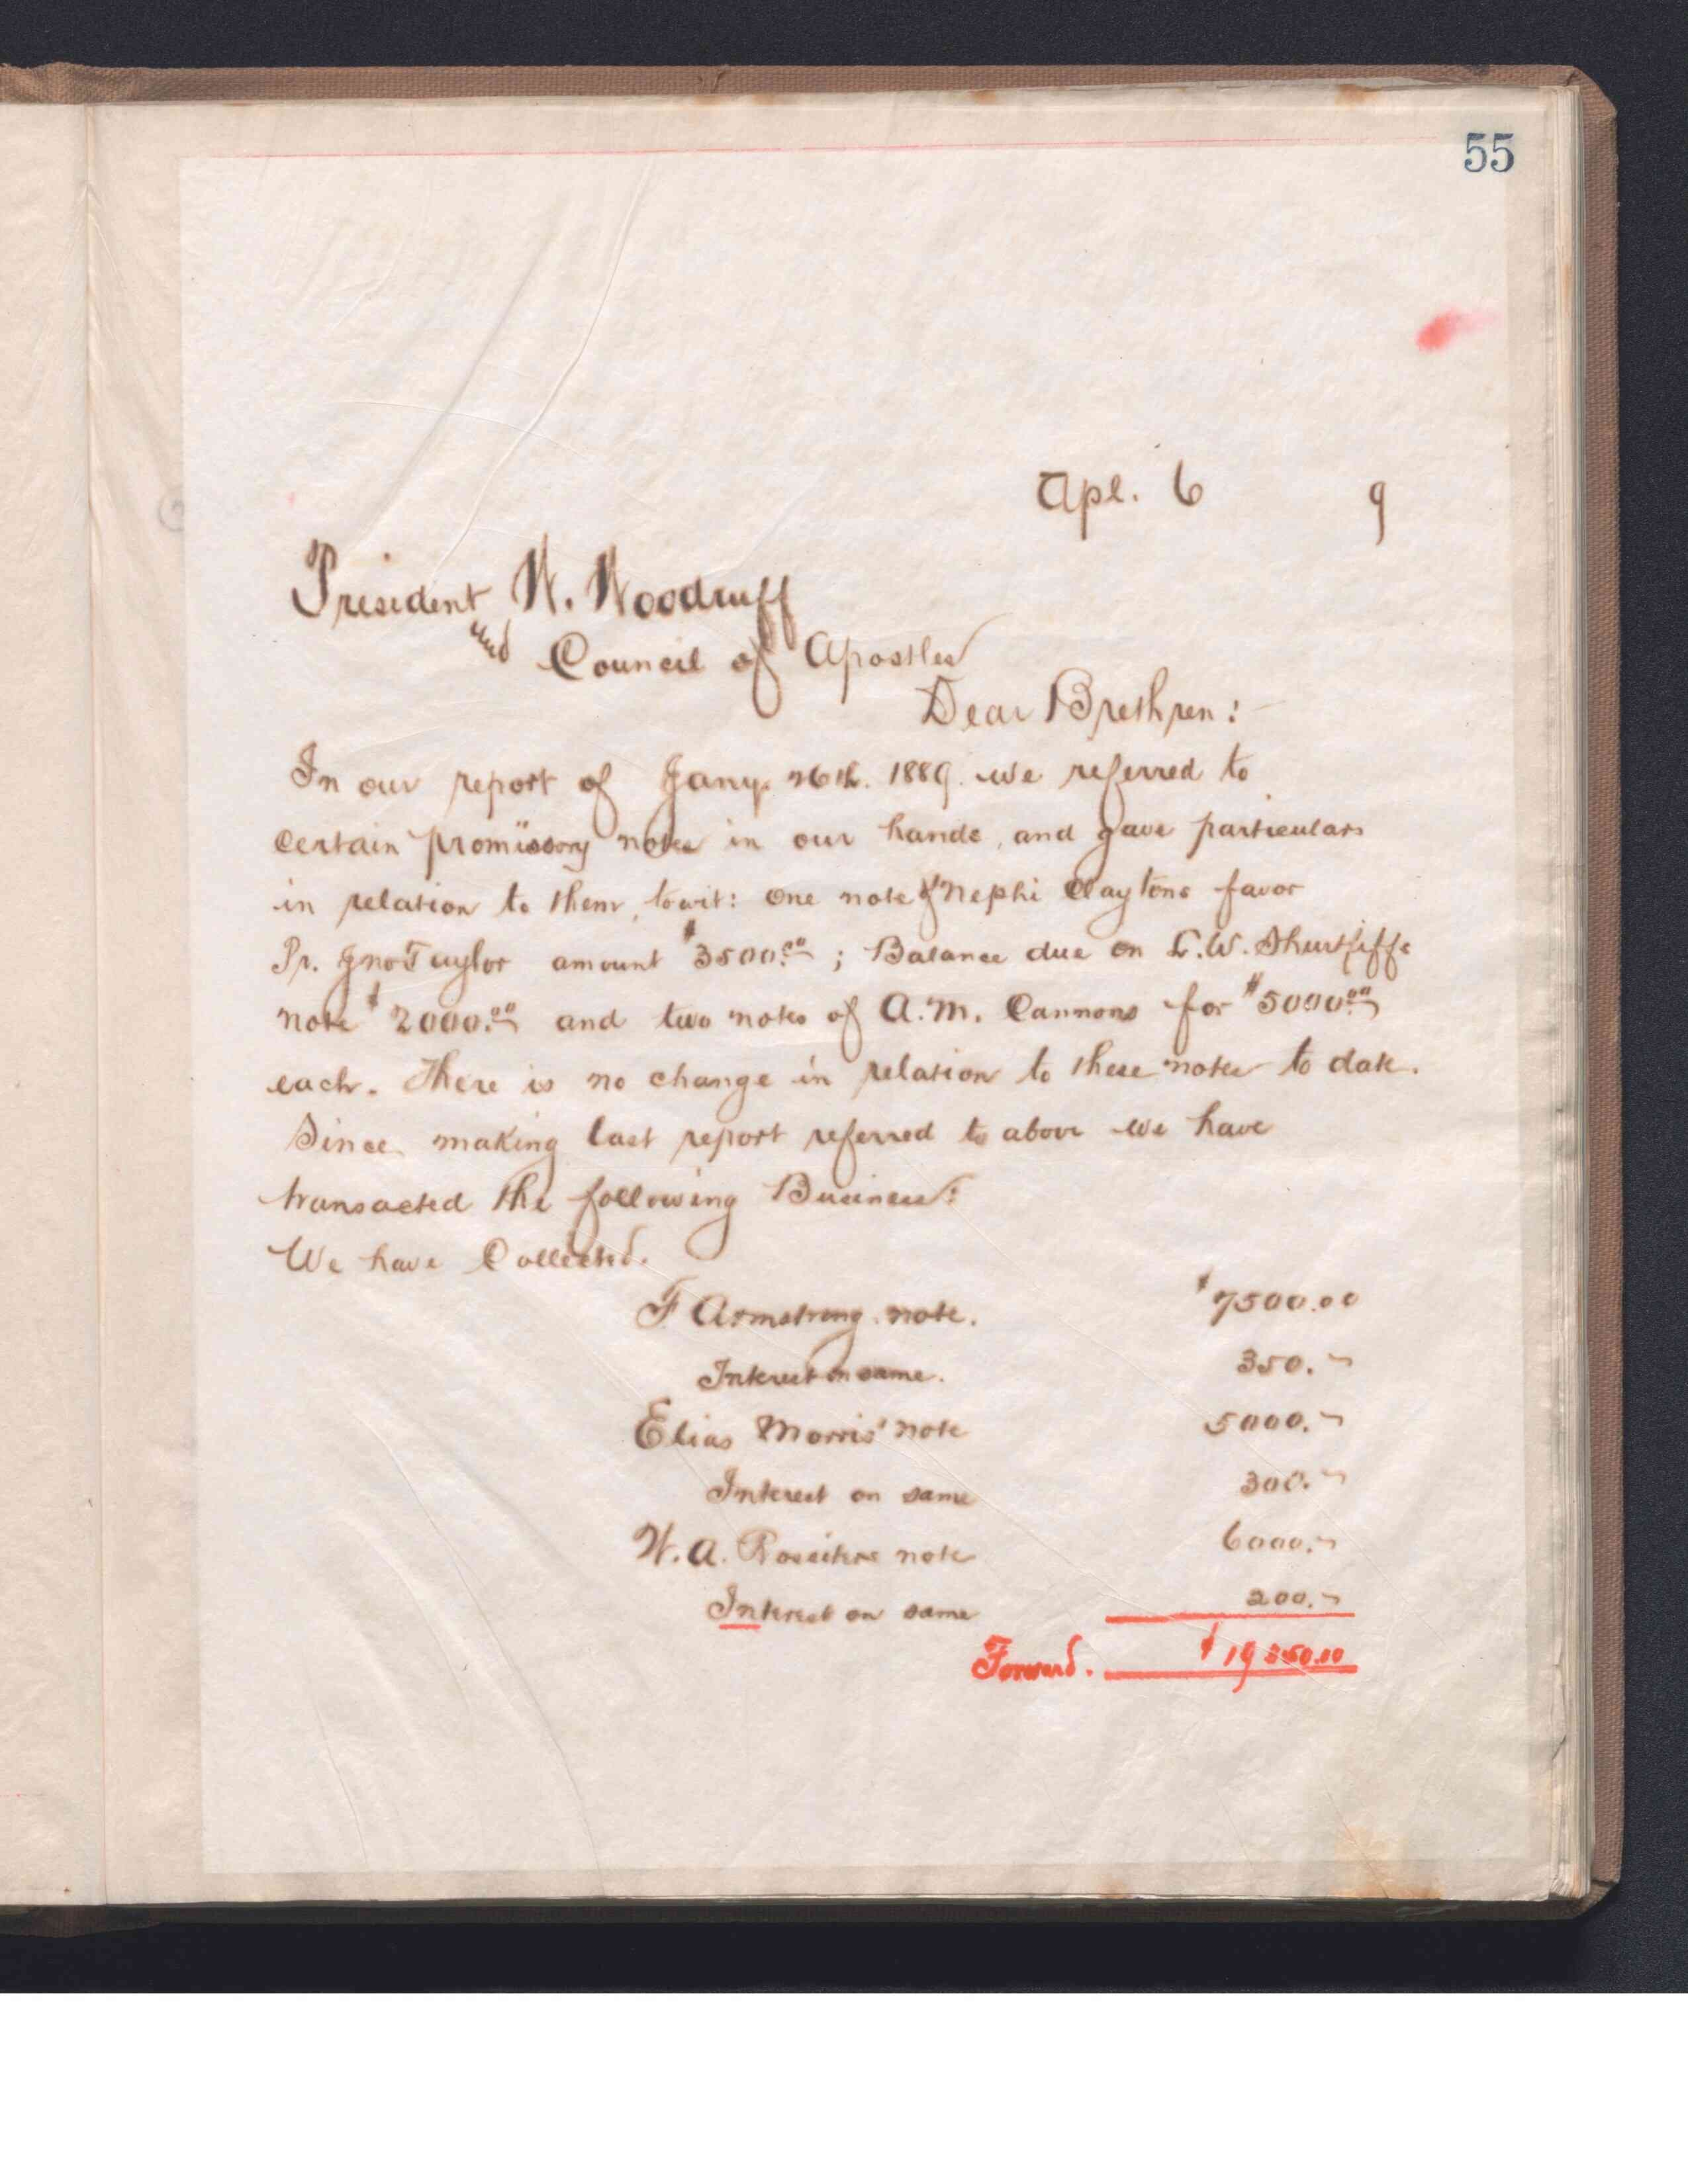 55
Apl. 6 9
President W. Woodruff
and Council of Apostles
Dear Brethren:
In our report of Jany. 26th. 1889. we referred to
certain promissory notes in our hands, and gave particulars
in relation to them, towit: One note of Nephi Claytons favor
Pr. Jno Taylor amount $3500.00; Balance due on L.W. Shurtliffs
note $2000.00 and two notes of A.M. Cannons for $5000.00
each. There is no change in relation to these notes to date.
Since making last report referred to above we have
transacted the following Business:
We have Collected.
F Armstrong note. $7500.00
Interest on same. 350.-
Elias Morris' note 5000.-
Interest on same 300.-
W.A. Rossiters note 6000.-
Interest on same 200.-
Forward. $19350.00